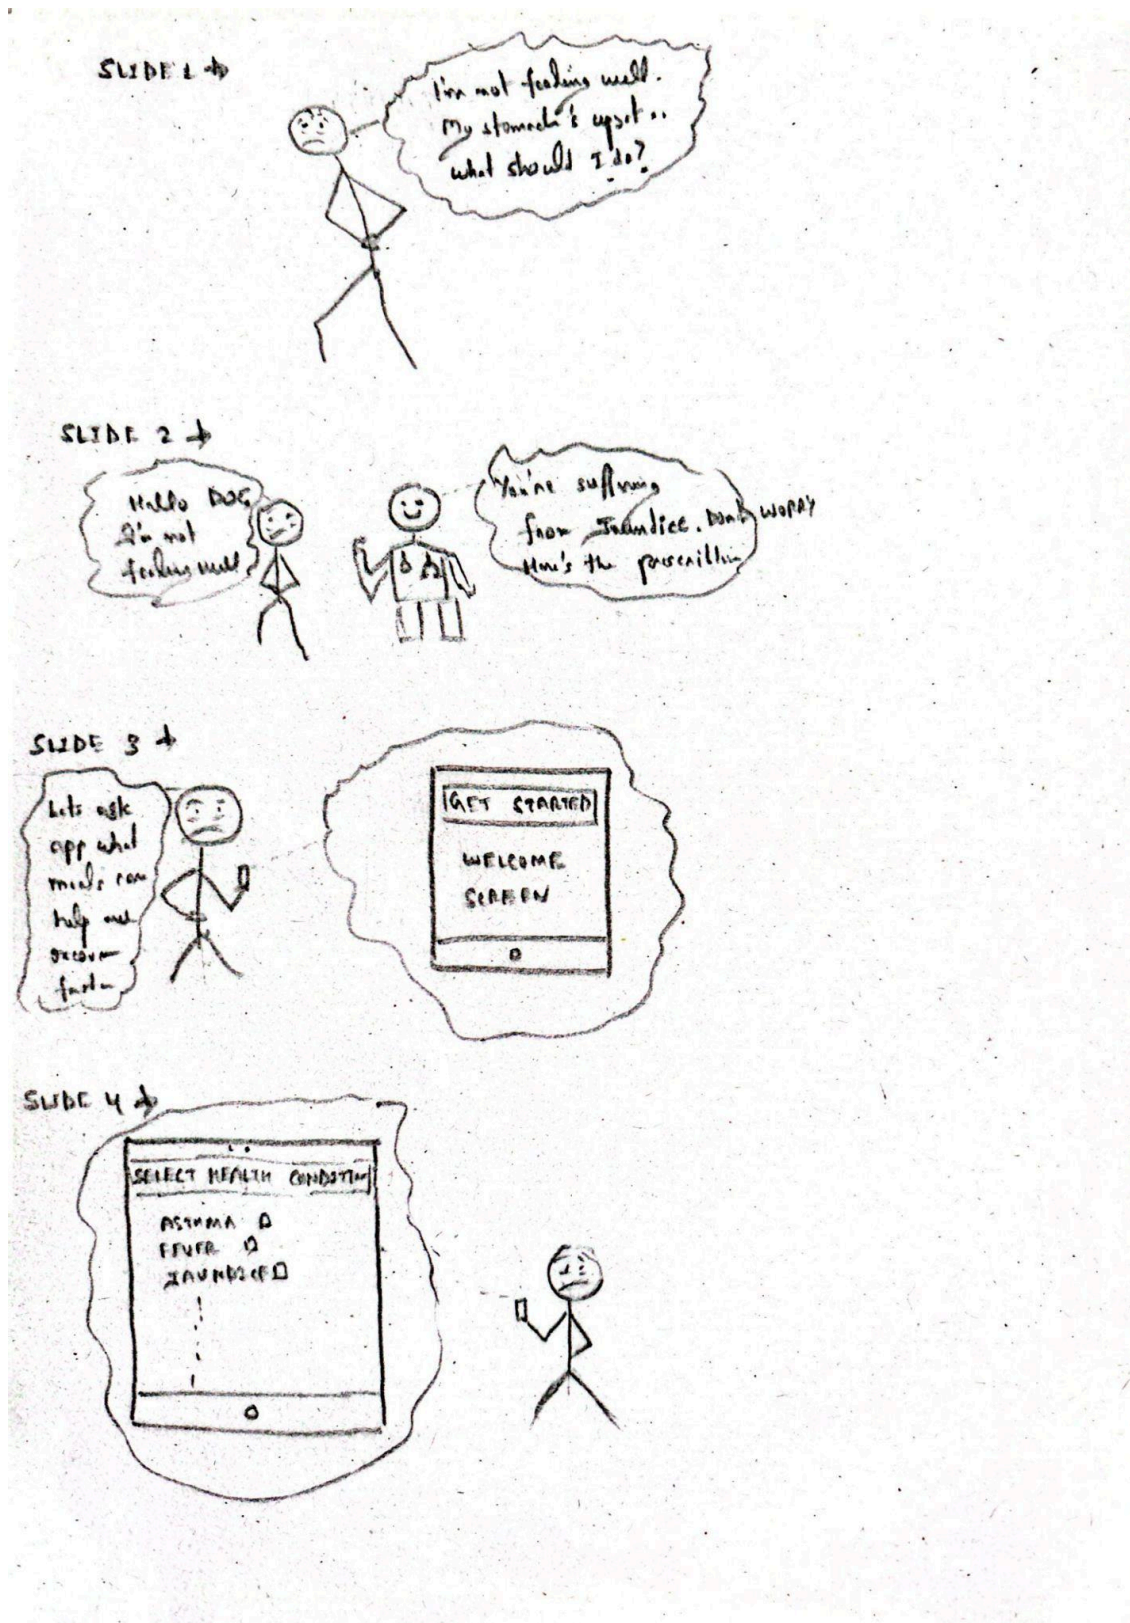 SLIDE 1 →
I'm not feeling well.
My stomach's upset ..
what should I do?
SLIDE 2 →
Hello DOC
I'm not
feeling well
You're suffring
from Jaundice. Don't WORRY
Here's the
SLIDE 3 →
Lets ask
app what
meals can
help me
recover
faster
GET STARTED
WELCOME
SCREEN
SLIDE 4 →
SELECT HEALTH CONDITION
ASTHMA
FEVER
JAUNDICE